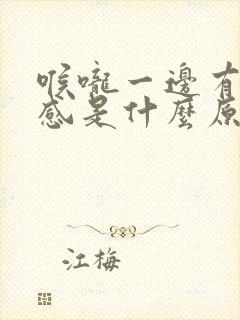 喉嚨一邊有
感是什麼原
江梅